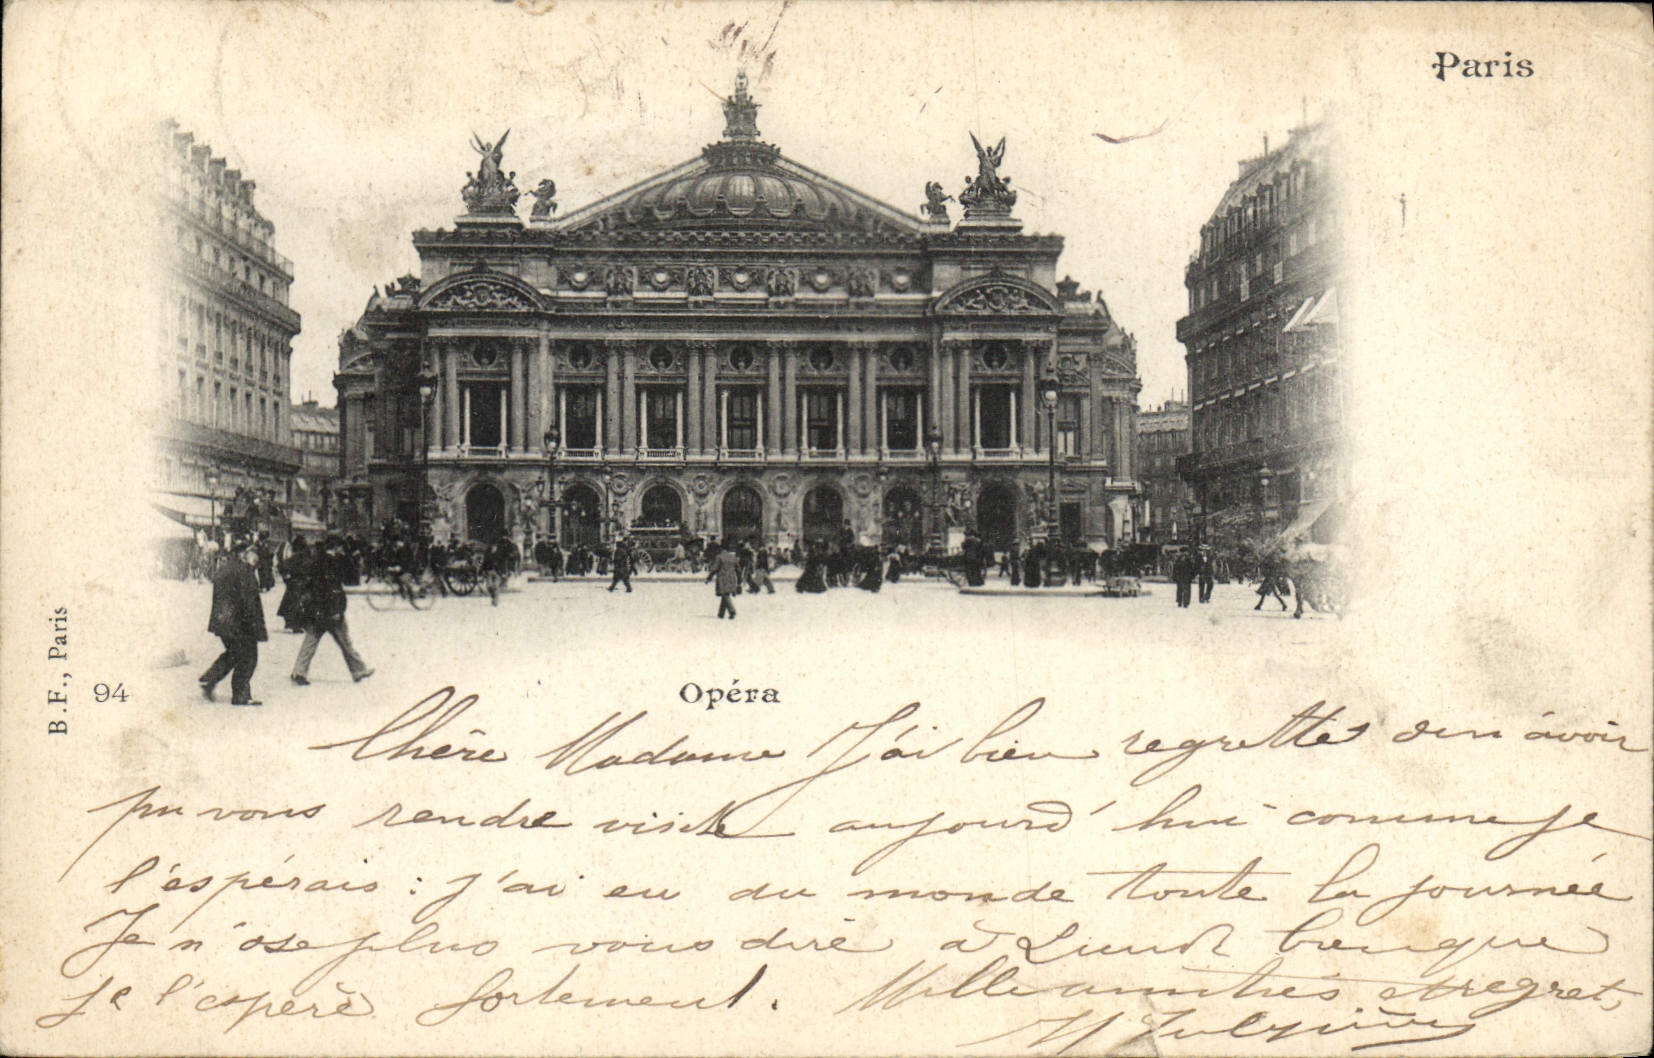 Paris
B.F., Paris
94
Opéra
Chère Madame J'ai bien regretté d'en avoir
pu vous rendre visite aujourd'hui comme je
l'espérais : j'ai eu du monde toute la journée
Je n'ose plus vous dire à Lundi bien que
je l'espère fortement. Mille amitiés et regrets,
M